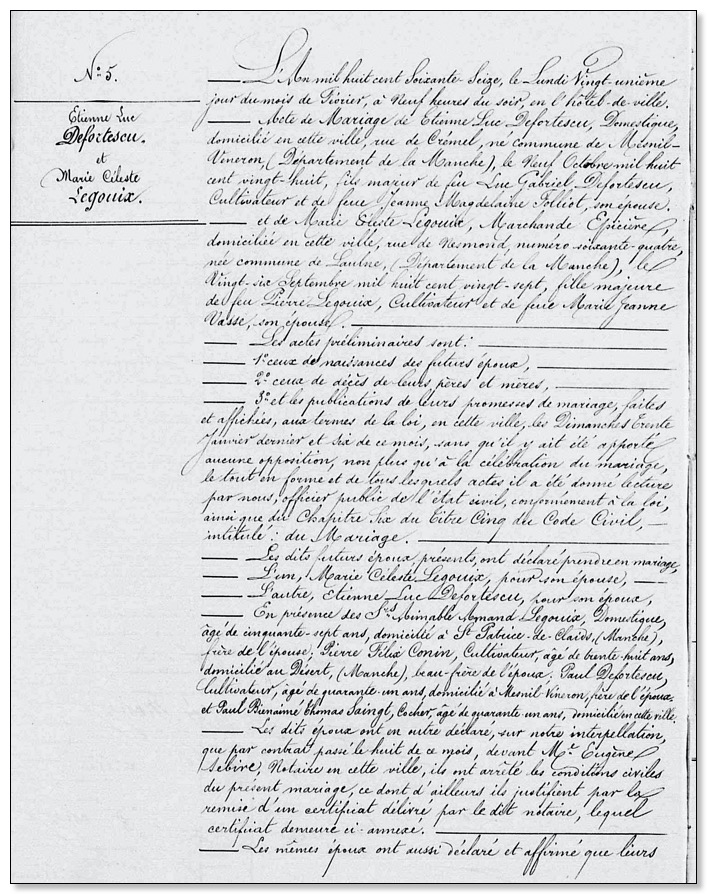 N.° 5.
Etienne Luc
Defortescu.
et
Marie Céleste
Legouix.
L'An mil huit cent Soixante-Seize, le Lundi Vingt-unième
jour du mois de Février, à Neuf heures du soir, en l'hôtel-de-ville.
Acte de Mariage de Etienne Luc Defortescu, Domestique,
domicilié en cette ville, rue de Crémel, né commune de Mesnil-
Vineron, (Département de la Manche), le Neuf Octobre mil huit
cent vingt-huit, fils majeur de feu Luc Gabriel Defortescu,
Cultivateur et de feue Jeanne Magdelaine Folliot, son épouse.
et de Marie Céleste Legouix, Marchande Epicière,
domiciliée en cette ville, rue de Nesmond, numéro soixante-quatre,
née commune de Laulne, (Département de la Manche), le
Vingt-six Septembre mil huit cent vingt-sept, fille majeure
de feu Pierre Legouix, Cultivateur et de feue Marie Jeanne
Vasse, son épouse.
Les actes préliminaires sont:
1° ceux de naissances des futurs époux,
2° ceux de décès de leurs pères et mères,
3° et les publications de leurs promesses de mariage, faites
et affichées, aux termes de la loi, en cette ville, les Dimanches Trente
Janvier dernier et Six de ce mois, sans qu'il y ait été apporté
aucune opposition, non plus qu'à la célébration du mariage,
le tout en forme et de tous lesquels actes il a été donné lecture
par nous, officier public de l'état civil, conformément à la loi,
ainsi que du Chapitre Six du Titre Cinq du Code Civil,
intitulé: du Mariage.
Les dits futurs époux présents, ont déclaré prendre en mariage,
L'un, Marie Céleste Legouix, pour son épouse,
L'autre, Etienne Luc Defortescu, pour son époux,
En présence des Srs Aimable Amand Legouix, Domestique,
âgé de cinquante-sept ans, domicilié à St Patrice-de-Claids, (Manche),
frère de l'épouse; Pierre Félix Conin, Cultivateur, âgé de trente-huit ans,
domicilié au Désert, (Manche), beau-frère de l'époux; Paul Defortescu,
Cultivateur, âgé de quarante-un ans, domicilié à Mesnil Vineron, frère de l'époux;
et Paul Bienaimé Thomas Saingt, Cocher, âgé de quarante-un ans, domicilié en cette ville.
Les dits époux ont en outre déclaré, sur notre interpellation,
que par contrat passé le huit de ce mois, devant Me Eugène
Sebire, Notaire en cette ville, ils ont arrêté les conditions civiles
du présent mariage, ce dont d'ailleurs ils justifient par la
remise d'un certificat délivré par le dit notaire, lequel
certificat demeure ci-annexé.
Les mêmes époux ont aussi déclaré et affirmé que leurs